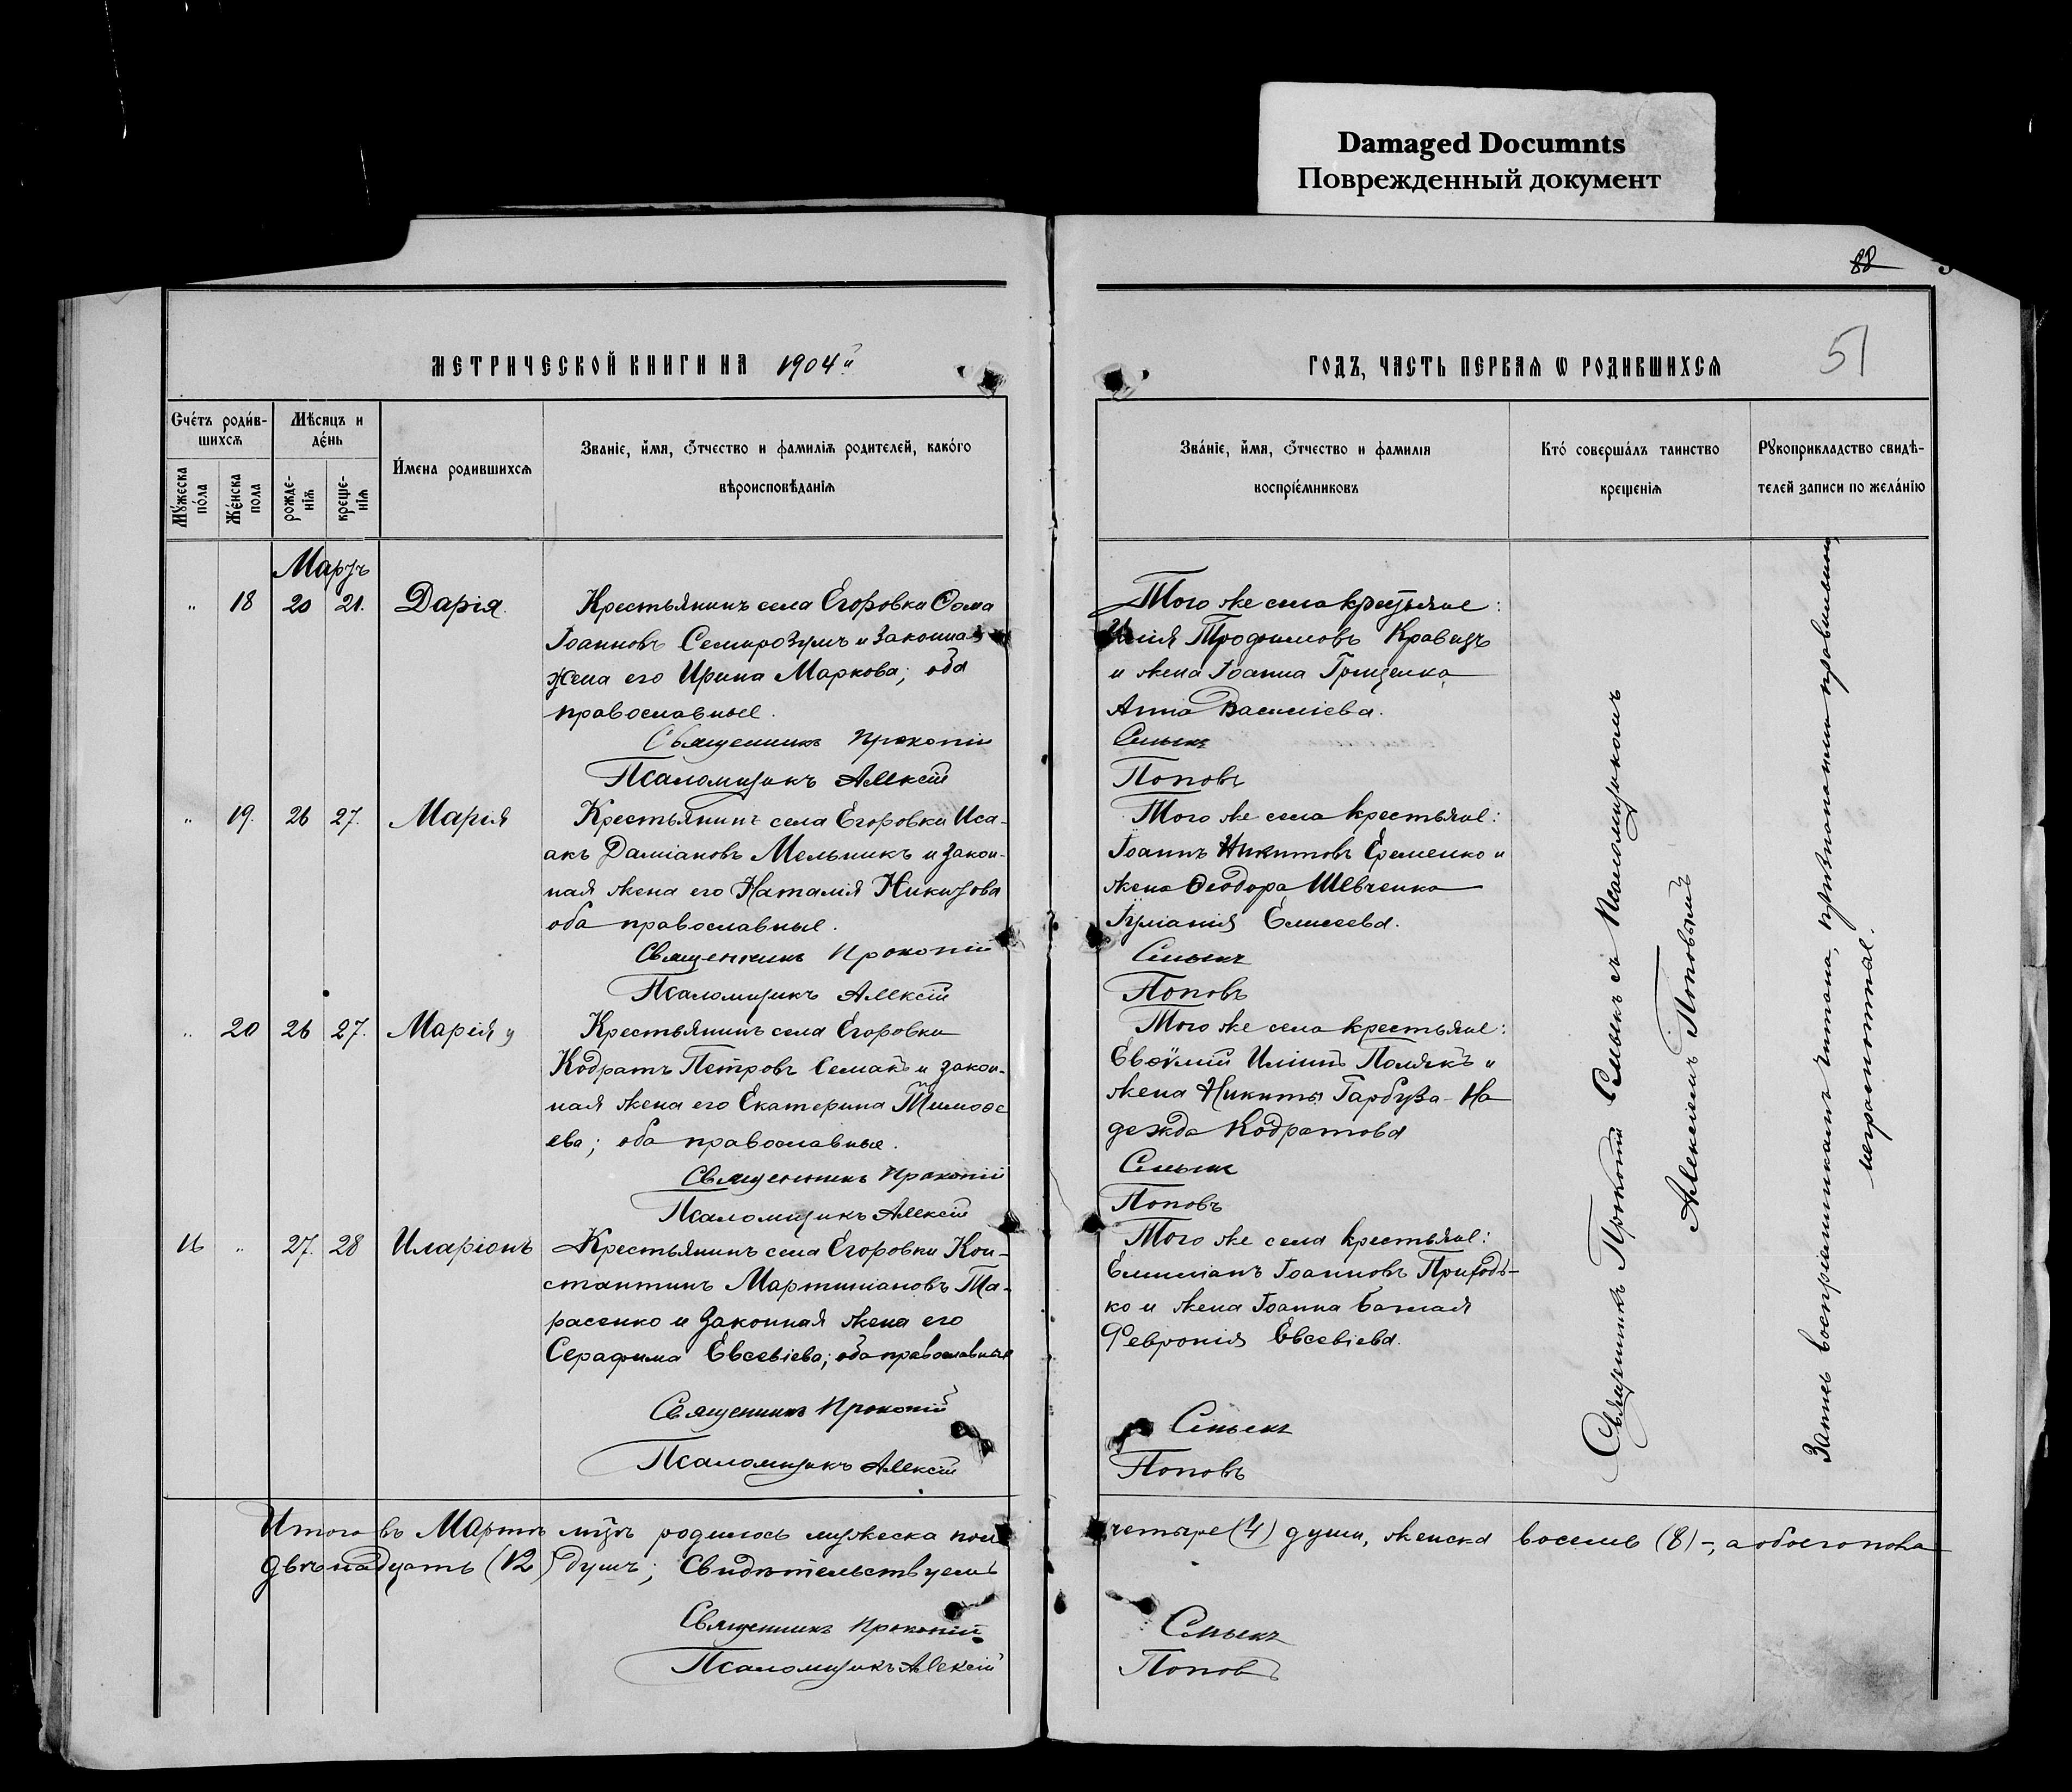 Damaged Documnts
Поврежденный документ
88
51
МЕТРИЧЕСКОЙ КНИГИ НА 1904й
ГОДЪ, ЧАСТЬ ПЕРВАЯ Ѡ РОДИВШИХСЯ
Счéтъ роди́в-
шихсѧ
Мѣсяцъ и
дéнь
Мꙋ́жеска
по́ла
Жéнска
пола
рожде-
нїѧ
креще-
нїѧ
И́мена родившихсѧ
Званїе, и́мя, ѻ҆тчество и фамилїѧ родителей, како́го
вѣроисповѣданїѧ
Зва́нїе, и́мя, ѻ҆тчество и фамилїя
воспрїéмниковъ
Кто́ соверша́лъ таинство
крещенїѧ
Рꙋкоприкладство свидѣ-
телей записи по жела́нїю
Мартъ
" 18 20 21. Дарія.
Крестьянинъ села Егоровка Ѳома
Іоанновъ Семирозумъ и законная
жена его Ирина Маркова; оба
православные.
Священникъ Прокопій
Псаломщикъ Алексій
Того же села крестьяне:
Трофимовъ Кравецъ
и жена Іоанна Грищенка
Анна Василіева.
Смыкъ
Поповъ
" 19. 26 27. Марія
Крестьянинъ села Егоровки Иса-
акъ Даміановъ Мельникъ и закон-
ная жена его Наталія Никитова
оба православные.
Священникъ Прокопій
Псаломщикъ Алексій
Того же села крестьяне:
Іоаннъ Никитовъ Еременко и
жена Ѳеодора Шевченка
Іуліанія Елисеева.
Смыкъ
Поповъ
" 20 26 27. Марія
Крестьянинъ села Егоровки
Кодратъ Петровъ Семакъ и закон-
ная жена его Екатерина Тимоѳе
ева; оба православные.
Священникъ Прокопій
Псаломщикъ Алексій
Того же села крестьяне:
Евѳѵмій Иліинъ Полякъ и
жена Никиты Гарбуза На
дежда Кодратова
Смыкъ
Поповъ
16 " 27. 28 Иларіонъ
Крестьянинъ села Егоровки Кон-
стантинъ Мартиніановъ Та-
расенко и законная жена его
Серафима Евсевіева; оба православные
Священникъ Прокопій
Псаломщикъ Алексій
Того же села крестьяне:
Емиліанъ Іоанновъ Приходь-
ко и жена Іоанна
Февронія Евсевіева.
Смыкъ
Поповъ
Священникъ Прокопій Смыкъ съ Псаломщикомъ
Алексіемъ Поповымъ
Запись воспріемникамъ читана,
неграмотные.
Итого въ Мартѣ родилось мужеска пола четыре (4) души, женска восемь (8) -, а обоего пола
двѣнадцать (12) душъ; Свидѣтельствуемъ
Священникъ Прокопій Смыкъ
Псаломщикъ Алексій Поповъ